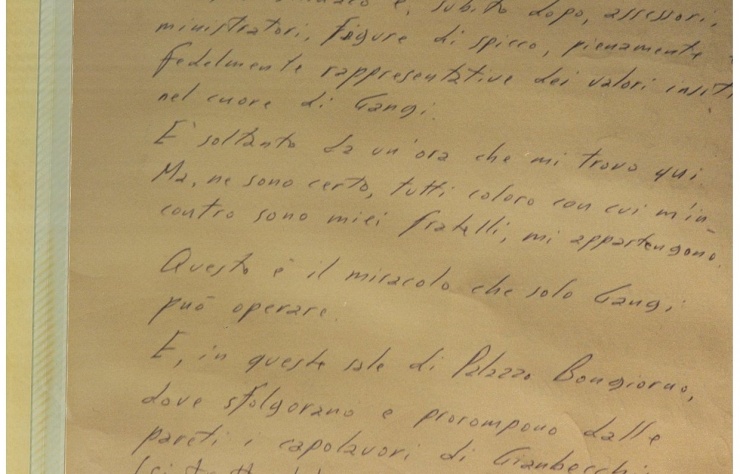 e, subito dopo, assessori,
ministratori, figure di spicco, pienamente e
fedelmente rappresentative dei valori insiti
nel cuore di Gangi.
E' soltanto da un'ora che mi trovo qui
Ma, ne sono certo, tutti coloro con cui m'in-
contro sono miei fratelli, mi appartengono.
Questo è il miracolo che solo Gangi
può operare.
E, in queste sale di Palazzo Bongiorno,
dove sfolgorano e prorompono dalle
pareti i capolavori di Gianbecchi